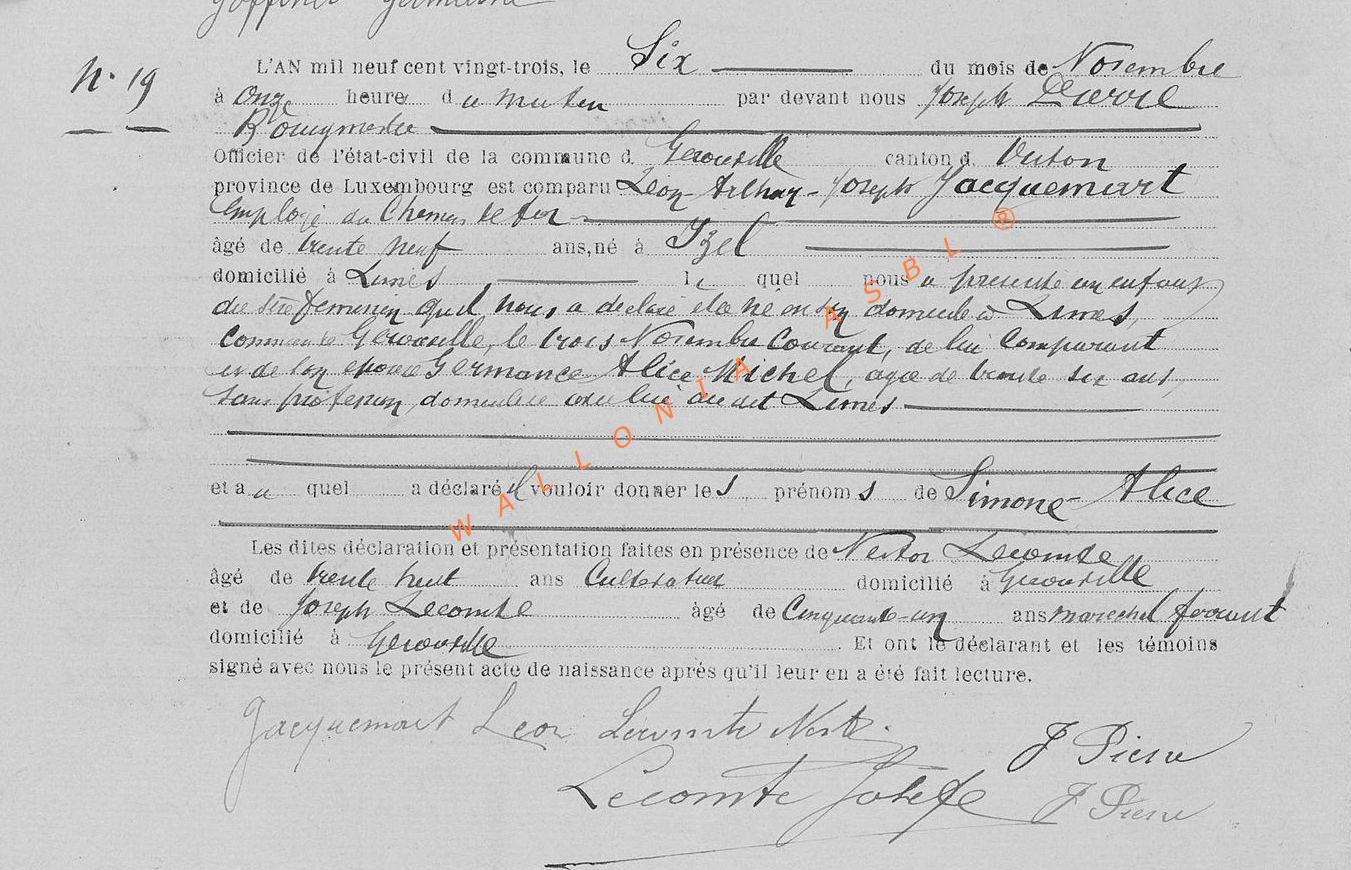 Goffinet Germaine
N° 19
L'AN mil neuf cent vingt-trois, le Six du mois de Novembre
à Onze heure du matin par devant nous Joseph Pierre
Bourgmestre
Officier de l'état-civil de la commune d. Gérouville canton d. Virton
province de Luxembourg est comparu Léon-Arthur-Joseph Jacquemart
Employé du Chemin de fer
âgé de trente neuf ans, né à Izel
domicilié à Limes lequel nous a présenté un enfant
du sexe féminin qu'il nous a déclaré être né en son domicile à Limes,
commune de Gérouville, le trois Novembre courant, de lui comparant
et de son épouse Germance Alice Michel, agée de trente six ans,
sans profession, domiciliée avec lui au dit Limes
et auquel a déclaré il vouloir donner les prénoms de Simone-Alice
Les dites déclaration et présentation faites en présence de Nestor Lecomte
âgé de trente huit ans Cultivateur domicilié à Gérouville
et de Joseph Lecomte âgé de Cinquante-un ans maréchal ferrant
domicilié à Gérouville. Et ont le déclarant et les témoins
signé avec nous le présent acte de naissance après qu'il leur en a été fait lecture.
Jacquemart Léon Lecomte Nestor J Pierre
Lecomte Josefe J Pierre
WALLONIA ASBL ®